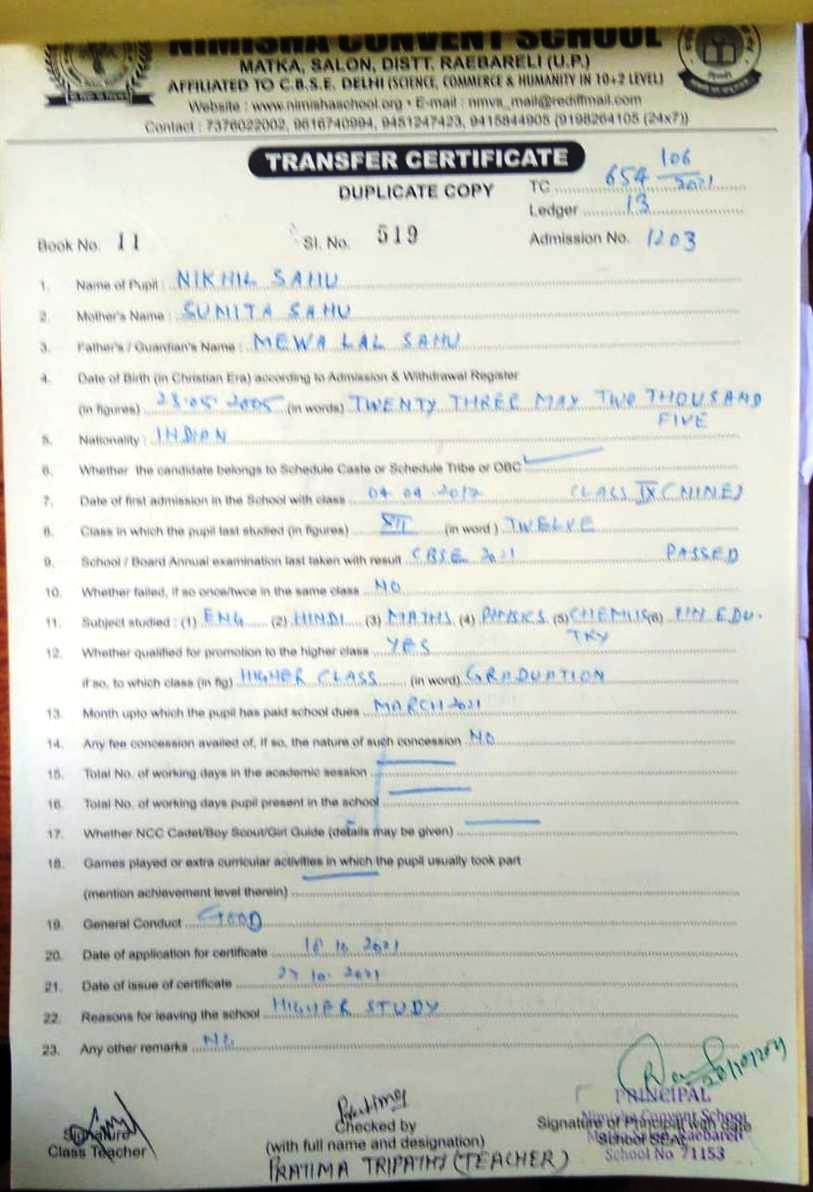 NIMISHA CONVENT SCHOOL
MATKA, SALON, DISTT. RAEBARELI (U.P.)
AFFILIATED TO C.B.S.E. DELHI (SCIENCE, COMMERCE & HUMANITY IN 10+2 LEVEL)
Website : www.nimishaschool.org • E-mail : nmvs_mail@rediffmail.com
Contact : 7376022002, 9616740994, 9451247423, 9415844905 (9198264105 (24x7))
TRANSFER CERTIFICATE
DUPLICATE COPY
TC 654 106/2021
Ledger 13
Book No. 11 Sl. No. 519 Admission No. 1203
1. Name of Pupil : NIKHIL SAHU
2. Mother's Name : SUNITA SAHU
3. Father's / Guardian's Name : MEWA LAL SAHU
4. Date of Birth (in Christian Era) according to Admission & Withdrawal Register
(in figures) 23.05.2005 (in words) TWENTY THREE MAY TWO THOUSAND
FIVE
5. Nationality : INDIAN
6. Whether the candidate belongs to Schedule Caste or Schedule Tribe or OBC
7. Date of first admission in the School with class 04 04 2017 CLASS IX (NINE)
8. Class in which the pupil last studied (in figures) XII (in word) TWELVE
9. School / Board Annual examination last taken with result CBSE 2021 PASSED
10. Whether failed, if so once/twce in the same class NO
11. Subject studied : (1) ENG (2) HINDI (3) MATHS (4) PHYSICS (5) CHEMIS (6) EDU.
TRY
12. Whether qualified for promotion to the higher class YES
if so, to which class (in fig) HIGHER CLASS (in word) GRADUATION
13. Month upto which the pupil has paid school dues MARCH 2021
14. Any fee concession availed of, if so, the nature of such concession NO
15. Total No. of working days in the academic session
16. Total No. of working days pupil present in the school
17. Whether NCC Cadet/Boy Scout/Girl Guide (details may be given)
18. Games played or extra curricular activities in which the pupil usually took part
(mention achievement level therein)
19. General Conduct GOOD
20. Date of application for certificate 10 2021
21. Date of issue of certificate 10. 2021
22. Reasons for leaving the school HIGHER STUDY
23. Any other remarks
PRINCIPAL
Pratima
Nimisha Convent School
Signature Checked by Signature of Principal with date
Class Teacher (with full name and designation) School SEAL
PRATIMA TRIPATHI (TEACHER) School No 71153